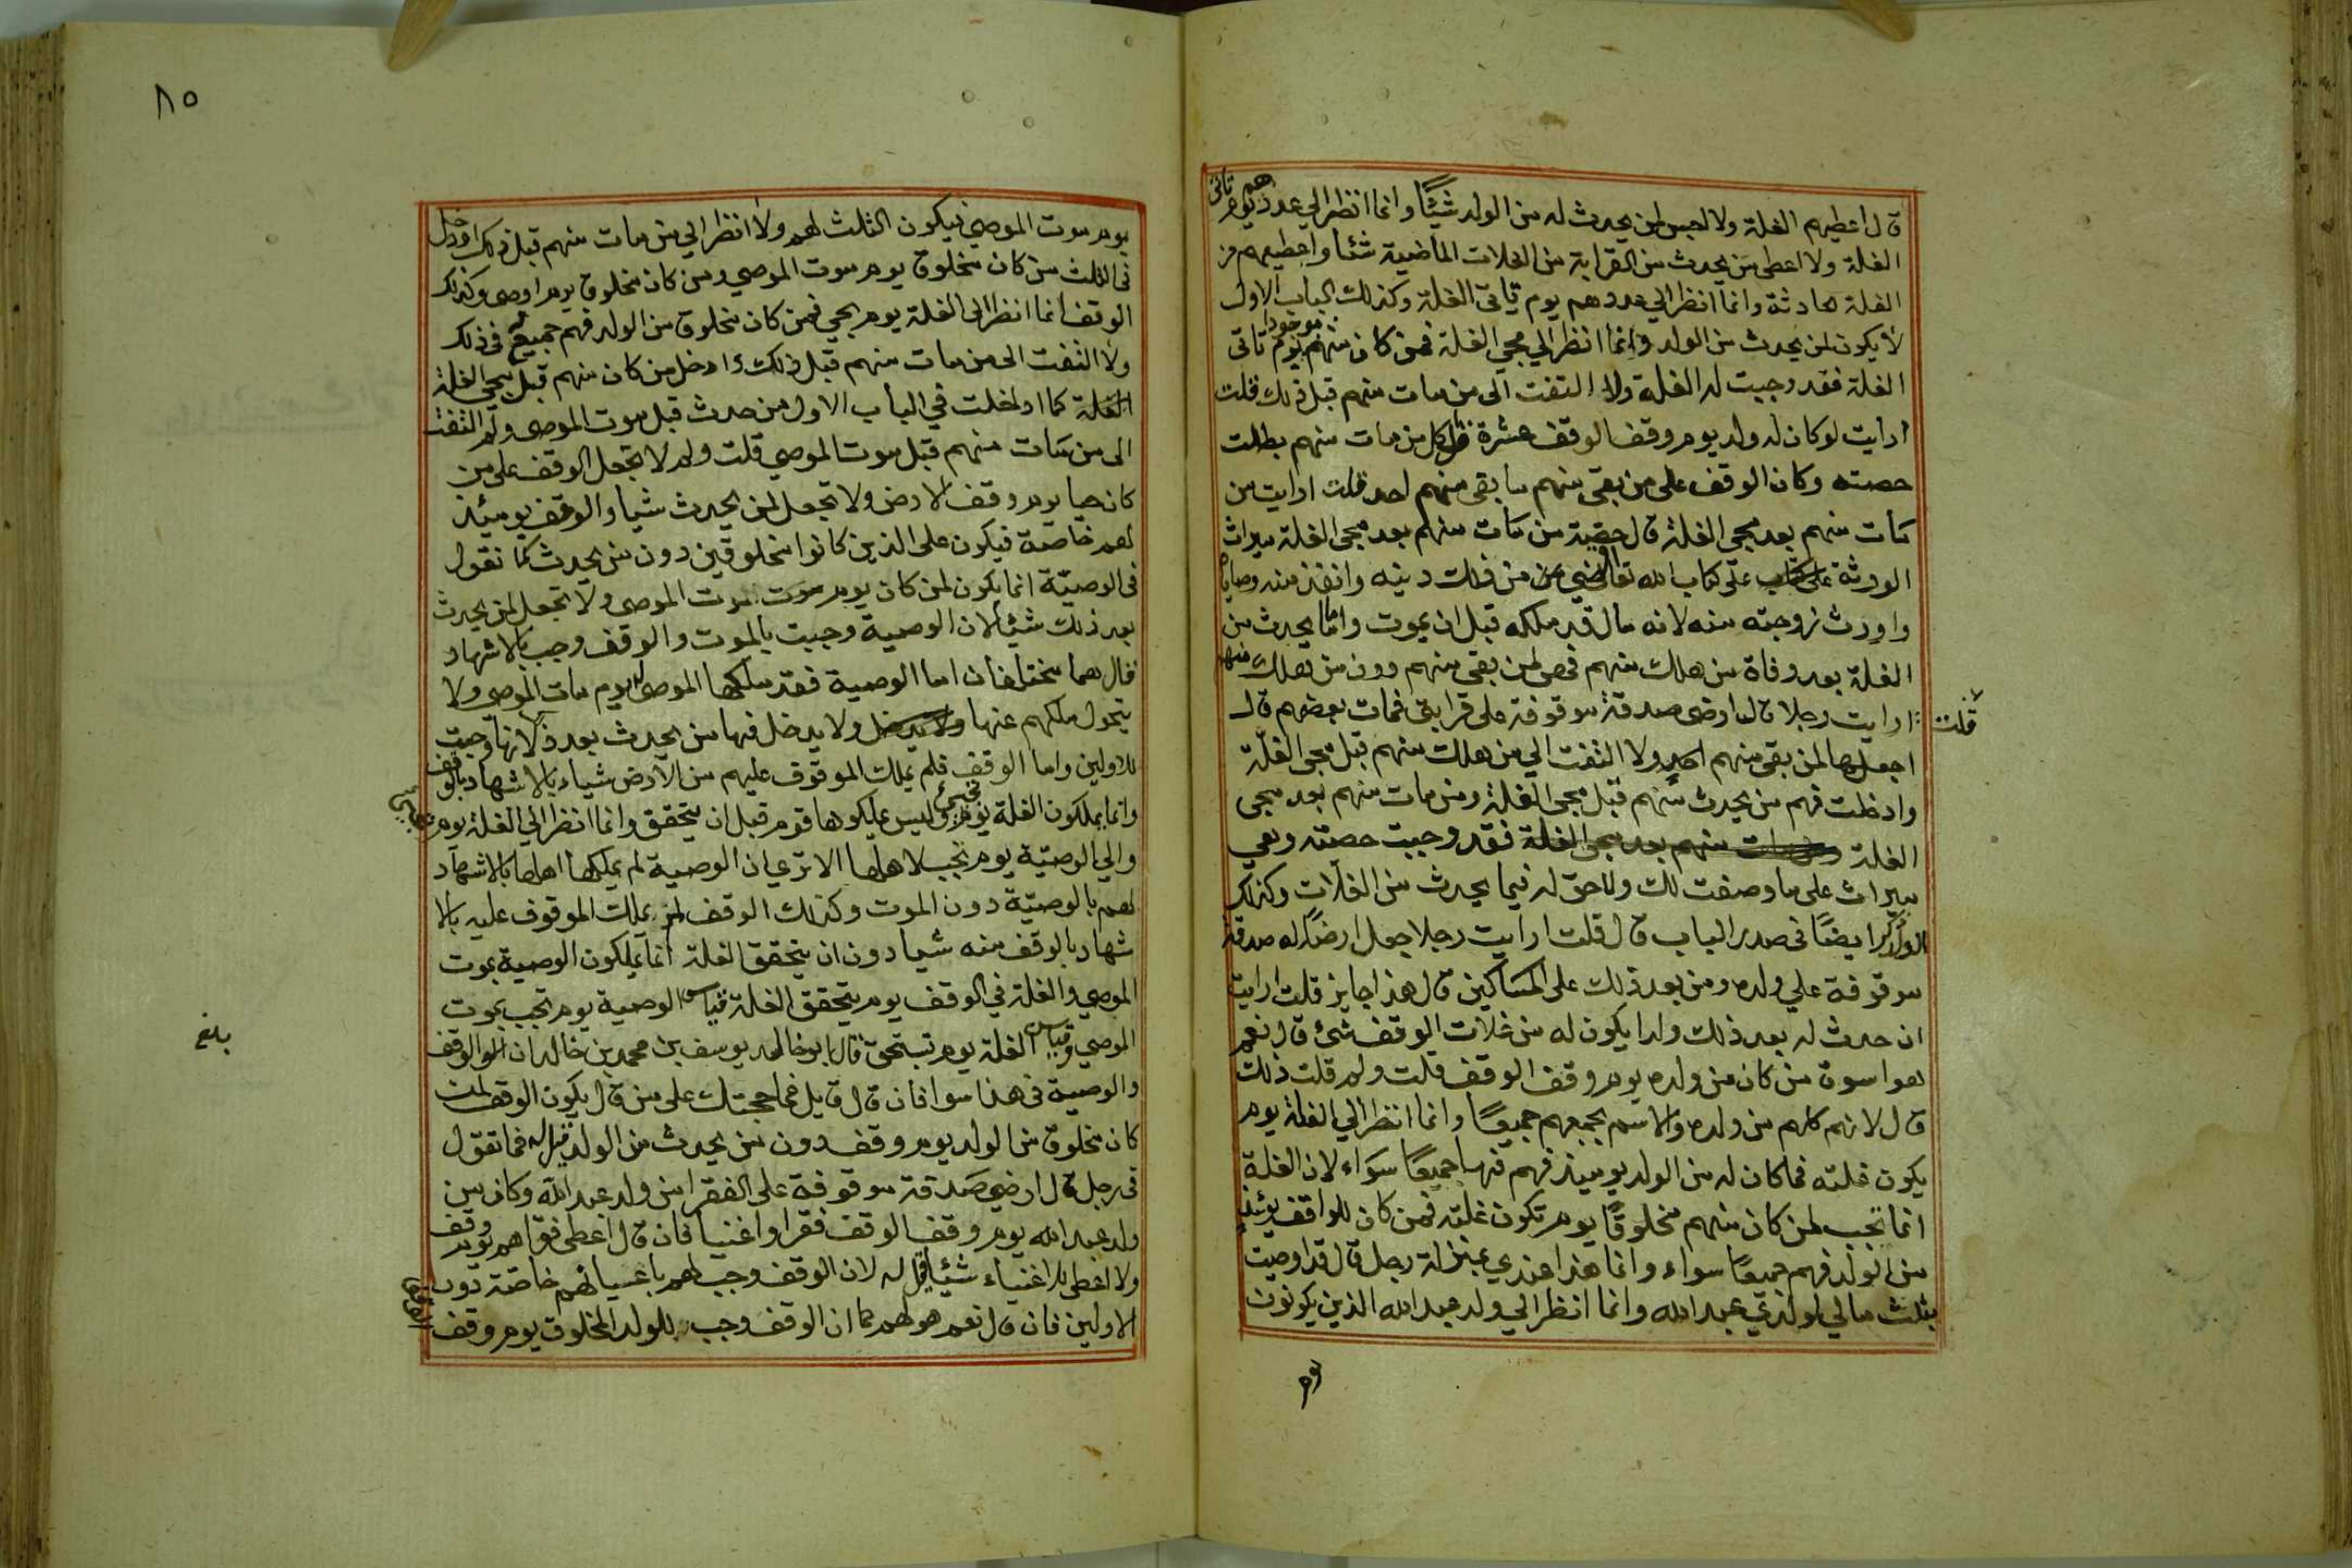 قال اعطيهم الغلة ولا احبس لمن يحدث له من الولد شيئًا وانما انظر الي عددهم يوم تاتى
الغلة ولا اعطى من يحدث من القرابة من الغلات الماضية شئا واعطيهم من
الغلة الحادثة وانما انظر الي عددهم يوم تاتى الغلة وكذلك الباب الاول
لا يكون لمن يحدث من الولد وانما انظر الي مجي الغلة فمن كان منهم موجودا يوم تاتى
الغلة فقد وجبت له الغلة ولا التفت الى من مات منهم قبل ذلك قلت
ارايت لو كان له ولد يوم وقف الوقف عشرة قال كل من مات منهم بطلت
حصته وكان الوقف على من بقى منهم ما بقى منهم احد قلت ارايت من
مات منهم بعد مجى الغلة قال حصة من مات منهم بعد مجى الغلة ميراث
الورثة على كتاب الله تعالى اقضي من ذلك دينه وانفذ منه وصاياه
واورث زوجته منه لانه مال قد ملكه قبل ان يموت واما ما يحدث من
الغلة بعد وفاة من هلك منهم فهى لمن بقى منهم دون من هلك منهم
قلت ارايت رجلا قال ارضى صدقة موقوفة على قرابتى فمات بعضهم قال
اجعلها لمن بقى منهم احد ولا التفت الي من هلك منهم قبل مجى الغلة
وادخلت فهم من يحدث منهم قبل مجى الغلة ومن مات منهم بعد مجى
الغلة ومن مات منهم بعد مجى الغلة فقد وجبت حصته وهي
ميراث على ما وصفت لك ولا حق له فيما يحدث من الغلات وكذلك
الولد ايضًا فى صدر الباب قال قلت ارايت رجلا جعل ارضًا له صدقة
موقوفة علي ولده ومن بعد ذلك على المساكين قال هذا جايز قلت ارايت
ان حدث له بعد ذلك ولد ايكون له من غلات الوقف شئ قال نعم
هو اسوة من كان من ولده يوم وقف الوقف قلت ولم قلت ذلك
قال لانهم كلهم من ولده والاسم يجمعهم جميعًا وانما انظر الي الغلة يوم
يكون غلته فما كان له من الولد يوميذ فهم فيها جميعًا سواء لان الغلة
انما تجب لمن كان منهم مخلوقًا يوم تكون غلته فمن كان للواقف يومئذ
من الولد فهم جميعًا سواء وانما هذا عندي بمنزلة رجل قال قد اوصيت
بثلث مالي لولد عبد الله وانما انظر الي ولد عبد الله الذين يكونون
يوم
٨٥
يوم موت الموصي فيكون الثلث لهم ولا انظر الي من مات منهم قبل ذلك وادخل
فى الثلث من كان مخلوق يوم موت الموصي ومن كان مخلوق يوم اوصى وكذلك
الوقف انما انظر الى الغلة يوم يجي فمن كان مخلوق من الولد فهم جميع فى ذلك
ولا التفت الى من مات منهم قبل ذلك وادخل من كان منهم قبل مجى الغلة
الغلة كما ادخلت في الباب الاول من حدث قبل موت الموصى ولم التفت
الى من مات منهم قبل موت الموصي قلت ولم لا تجعل الوقف على من
كان حيا يوم وقف الارض ولا تجعل لمن يحدث شيا والوقف يومئذ
لهم خاصة فيكون على الذين كانوا مخلوقين دون من يحدث كما تقول
فى الوصيّة انما يكون لمن كان يوم موت الموصى ولا تجعل لمن يحدث
بعد ذلك شيئا لان الوصية وجبت بالموت والوقف وجب بالاشهاد
قال هما مختلفان اما الوصية فقد ملكها الموصى له يوم مات الموصى ولا
يتحول ملكهم عنها ولا يدخل فيها من يحدث بعد ذلك لانها وجبت
للاولين واما الوقف فلم يملك الموقوف عليهم من الارض شياء بالاشهاد بالوقف
وانما يملكون الغلة يوم تجئ وليس يملكوها قوم قبل ان يتحقق وانما انظر الي الغلة يوم
والي الوصيّة يوم تجب لاهلها الا ترى ان الوصية لم يملكها اهلها بالاشهاد
لهم بالوصيّة دون الموت وكذلك الوقف لم يملك الموقوف عليه بالا
شهاد بالوقف منه شيا دون ان يتحقق الغلة انما يملكون الوصية بموت
الموصي والغلة في الوقف يوم يتحقق الغلة قياس الوصية يوم تجب بموت
الموصي وقياس الغلة يوم تستحق قال ابو خالد يوسف بن محمد بن خالد ان الوقف
والوصية فى هذا سوا فان قال قايل فما حجتك على من قال يكون الوقف لمن
كان مخلوق من الولد يوم وقف دون من يحدث من الولد قيل له فما تقول
فى رجل قال ارضي صدقة موقوفة على الفقرا من ولد عبد الله وكان من
ولد عبد الله يوم وقف الوقف فقرا واغنيا فان قال اعطى فقراهم يوم وقف
ولا اعطى للاغنياء شيئا قيل له لان الوقف وجب لهم باعيانهم خاصّة دون
الاولين فان قال نعم هو لهم كما ان الوقف وجب للولد المخلوق يوم وقف
بلغ